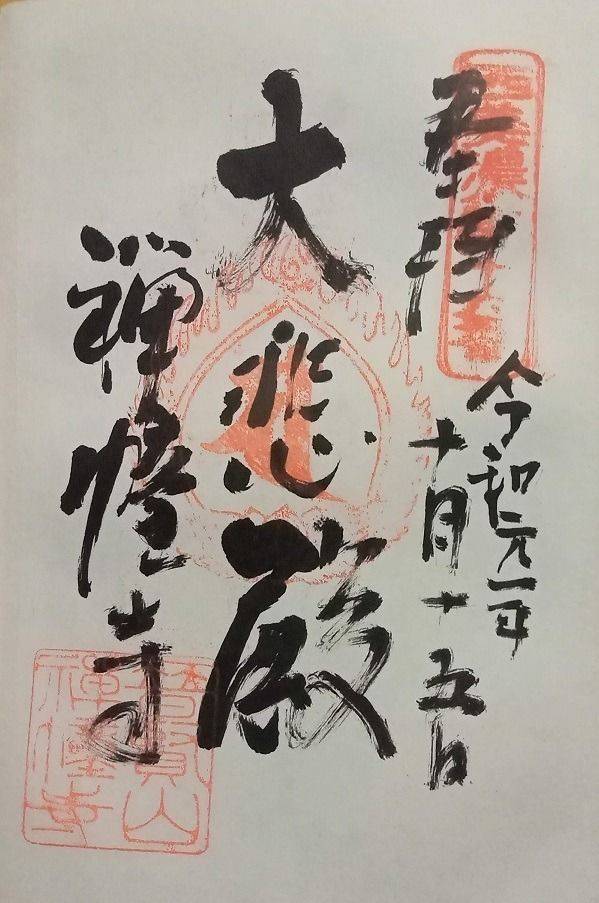 奉拝
令和元年
十月十五日
大悲殿
禅幢寺
禅幢寺